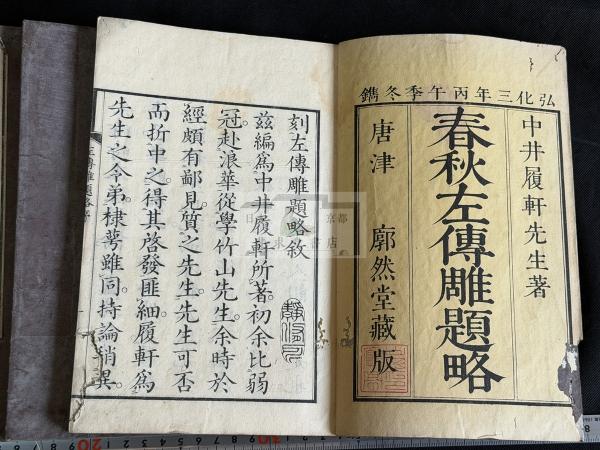 弘化三年丙午季冬鐫
中井履軒先生著
春秋左傳雕題略
唐津　廓然堂藏版
刻左傳雕題略敘
茲編爲中井履軒所著。初余比弱
冠赴浪華從學竹山先生。余時於
經頗有鄙見質之先生先生可否
而折中之得其啓發匪細。履軒爲
先生之令弟。棣萼雖同。持論稍異